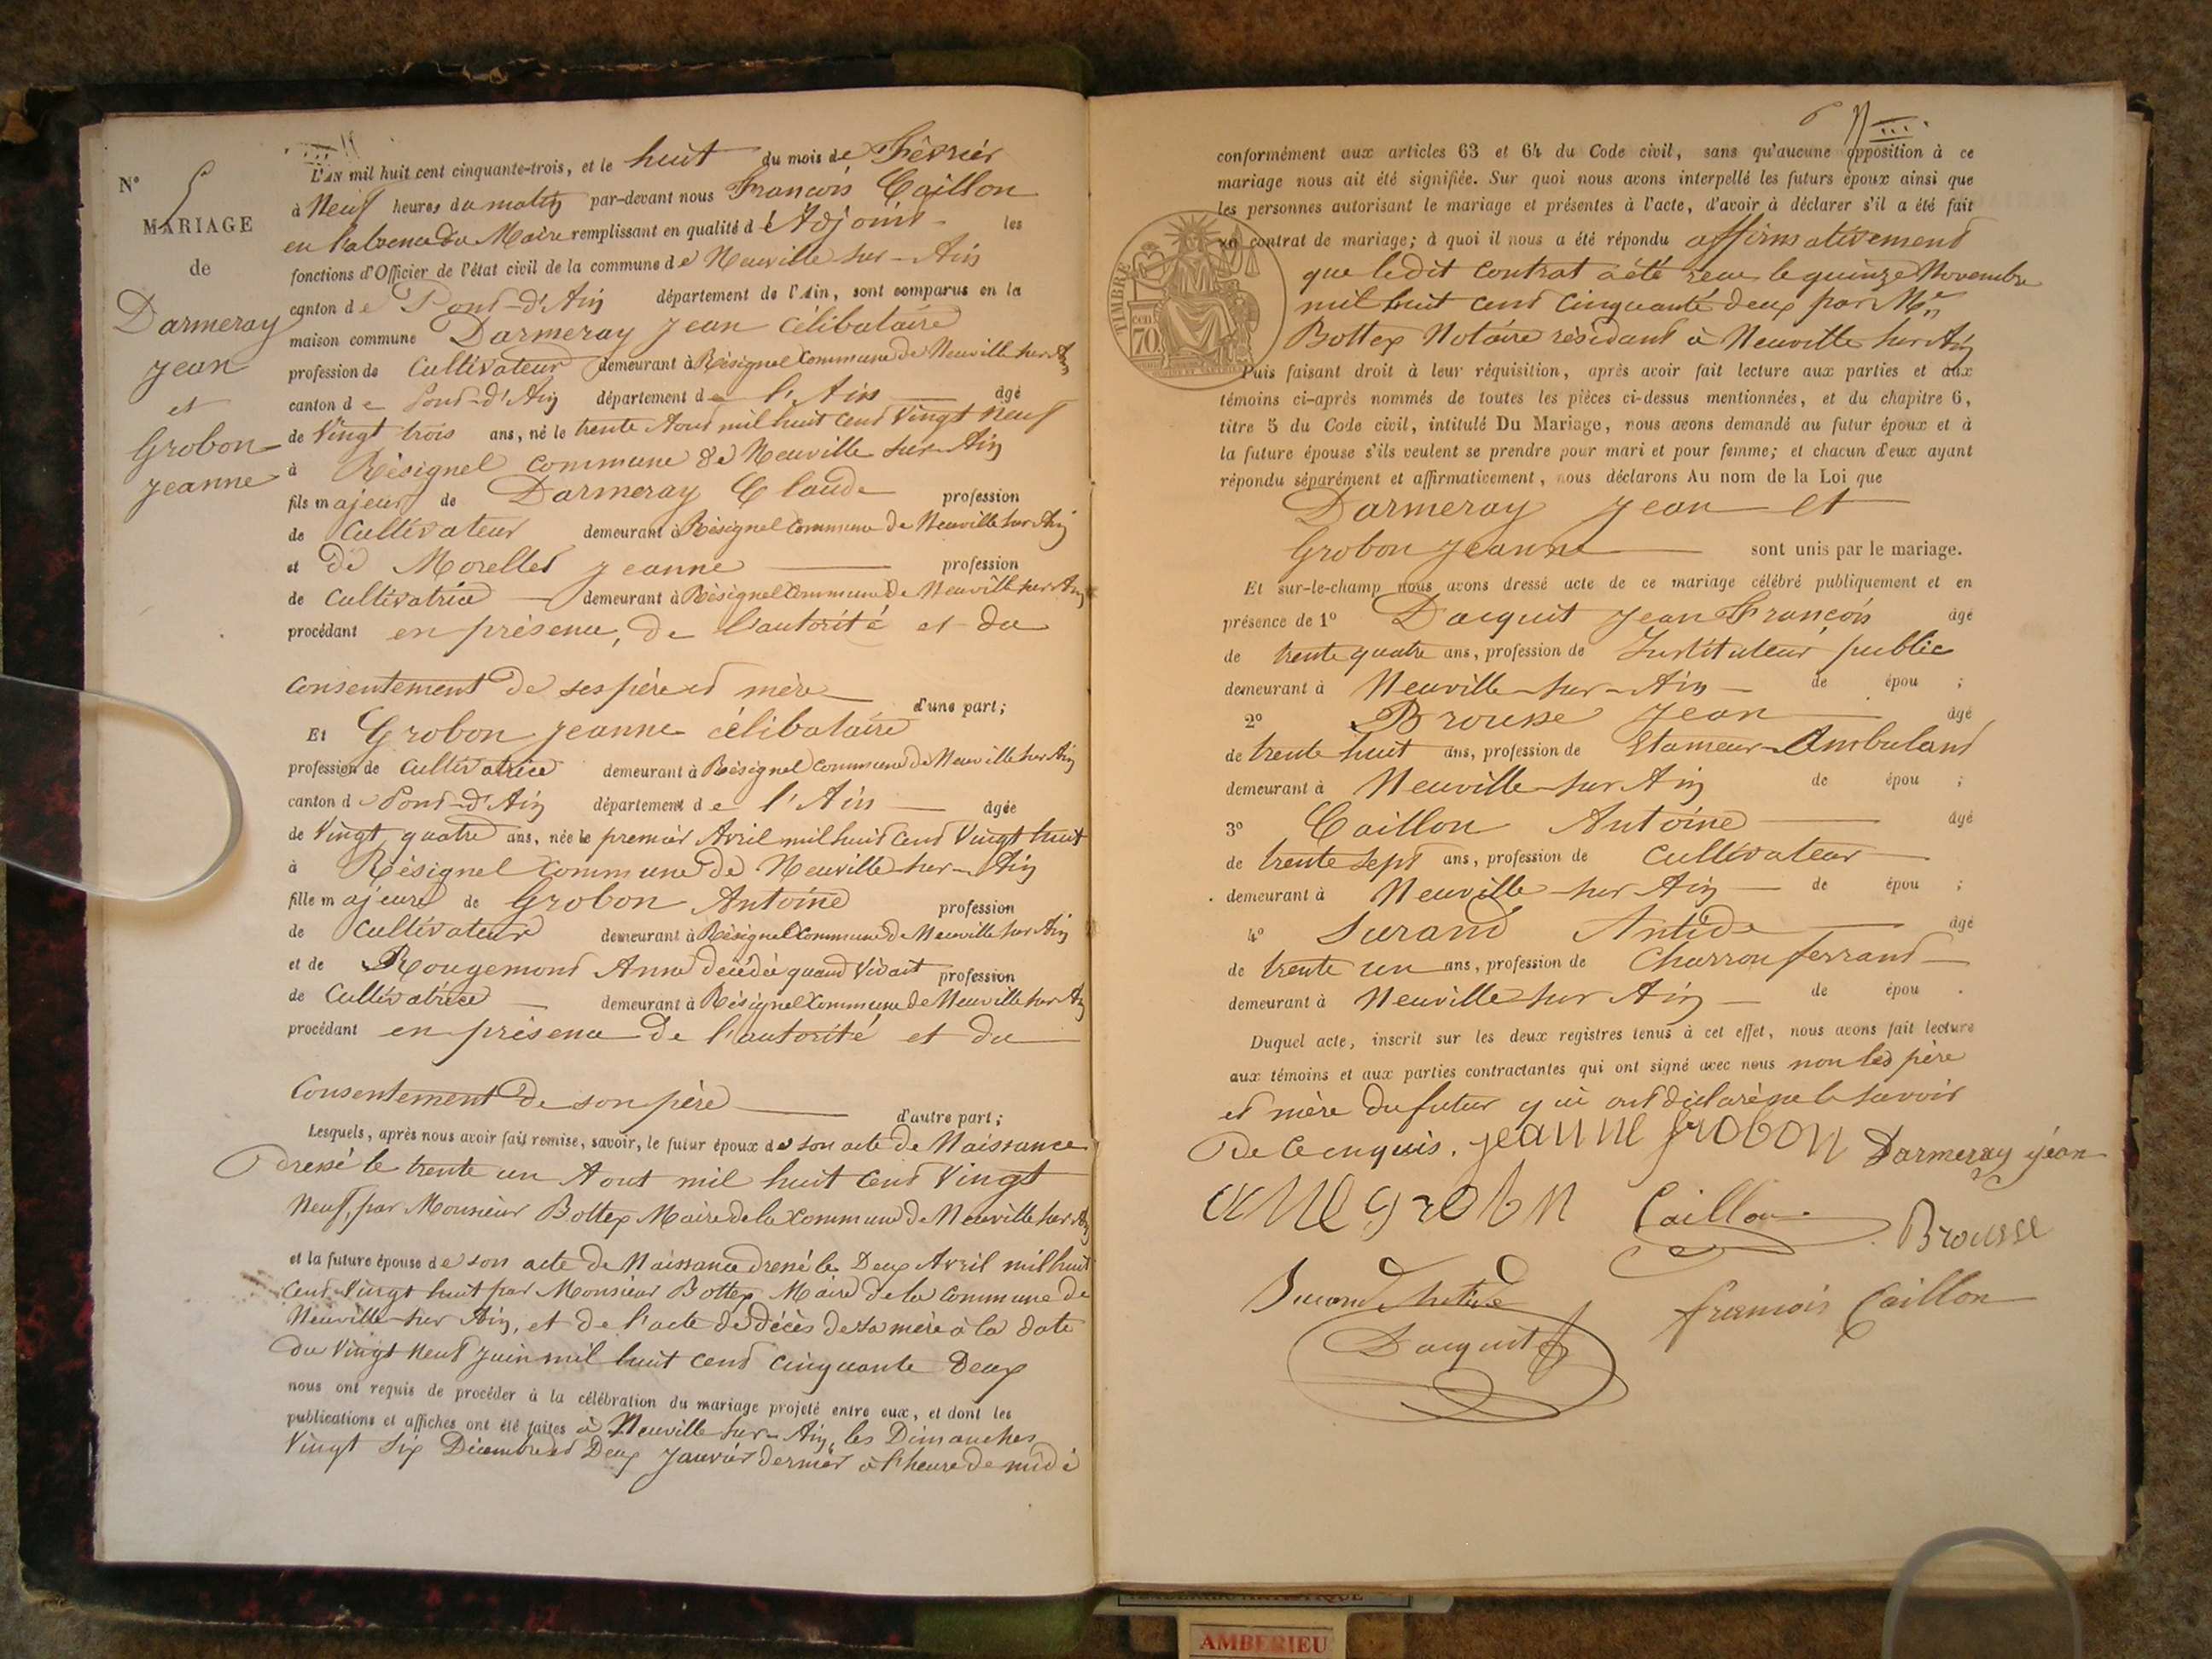 N° 5
MARIAGE
de
Darmeray
Jean
et
Grobon
Jeanne
L'AN mil huit cent cinquante-trois, et le huit du mois de Février
à Neuf heures du matin par-devant nous François Caillon
en l'absence du Maire remplissant en qualité d'Adjoint les
fonctions d'Officier de l'état civil de la commune de Neuville sur-Ain
canton de Pont-d'Ain département de l'Ain, sont comparus en la
maison commune Darmeray Jean célibataire
profession de Cultivateur demeurant à Résignel Commune de Neuville sur Ain
canton de Pont-d'Ain département de l'Ain âgé
de Vingt trois ans, né le trente Aout mil huit cent Vingt neuf
à Résignel Commune de Neuville sur-Ain
fils majeur de Darmeray Claude profession
de Cultivateur demeurant à Résignel Commune de Neuville sur Ain
et de Morellet Jeanne profession
de Cultivatrice demeurant à Résignel Commune de Neuville sur Ain
procédant en présence, de l'autorité et du
Consentement de ses père et mère
d'une part;
Et Grobon Jeanne célibataire
profession de Cultivatrice demeurant à Résignel Commune de Neuville sur Ain
canton de Pont-d'Ain département de l'Ain âgée
de Vingt quatre ans, née le premier Avril mil huit Cent Vingt huit
à Résignel Commune de Neuville sur-Ain
fille majeure de Grobon Antoine profession
de Cultivateur demeurant à Résignel Commune de Neuville sur Ain
et de Rougemont Anne décédée quand Vivait profession
de Cultivatrice demeurant à Résignel Commune de Neuville sur Ain
procédant en présence de l'autorité et du
Consentement de son père
d'autre part;
Lesquels, après nous avoir fait remise, savoir, le futur époux de son acte de Naissance
dressé le trente un Aout mil huit Cent Vingt
Neuf, par Monsieur Bottex Maire de la Commune de Neuville sur Ain
et la future épouse de son acte de Naissance dressé le Deux Avril mil huit
Cent Vingt huit par Monsieur Bottex Maire de la Commune de
Neuville sur Ain, et de l'acte de décès de sa mère à la date
du Vingt Neuf Juin mil huit cent cinquante Deux
nous ont requis de procéder à la célébration du mariage projeté entre eux, et dont les
publications et affiches ont été faites à Neuville sur-Ain, les Dimanches
Vingt Six Décembre et Deux Janvier dernier à l'heure de midi
6
conformément aux articles 63 et 64 du Code civil, sans qu'aucune opposition à ce
mariage nous ait été signifiée. Sur quoi nous avons interpellé les futurs époux ainsi que
les personnes autorisant le mariage et présentes à l'acte, d'avoir à déclarer s'il a été fait
un contrat de mariage; à quoi il nous a été répondu affirmativement
que ledit contrat a été reçu le quinze Novembre
mil huit cent cinquante deux par Me
Bottex Notaire résidant à Neuville sur Ain
TIMBRE
cen
70.
Puis faisant droit à leur réquisition, après avoir fait lecture aux parties et aux
témoins ci-après nommés de toutes les pièces ci-dessus mentionnées, et du chapitre 6,
titre 5 du Code civil, intitulé Du Mariage, nous avons demandé au futur époux et à
la future épouse s'ils veulent se prendre pour mari et pour femme; et chacun d'eux ayant
répondu séparément et affirmativement, nous déclarons Au nom de la Loi que
Darmeray Jean et
Grobon Jeanne sont unis par le mariage.
Et sur-le-champ nous avons dressé acte de ce mariage célébré publiquement et en
présence de 1° Dacquit Jean François âgé
de trente quatre ans, profession de Instituteur public
demeurant à Neuville-sur-Ain de épou ;
2° Brousse Jean âgé
de trente huit ans, profession de Etameur-Ambulant
demeurant à Neuville sur Ain de épou ;
3° Caillon Antoine âgé
de trente sept ans, profession de Cultivateur
demeurant à Neuville sur Ain de épou ;
4° Durand Antide âgé
de trente un ans, profession de Charron ferrant
demeurant à Neuville sur Ain de épou .
Duquel acte, inscrit sur les deux registres tenus à cet effet, nous avons fait lecture
aux témoins et aux parties contractantes qui ont signé avec nous non les père
et mère du futur qui ont déclaré ne le savoir
De ce enquis. jeanne grobon Darmeray jean
grobon Caillon Brousse
Durand Antide françois Caillon
Dacquit
AMBERIEU